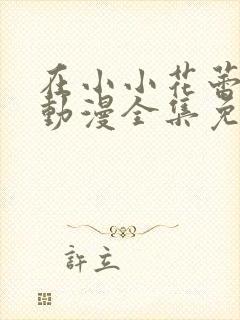 在小小花蕾
動漫全集免
許立